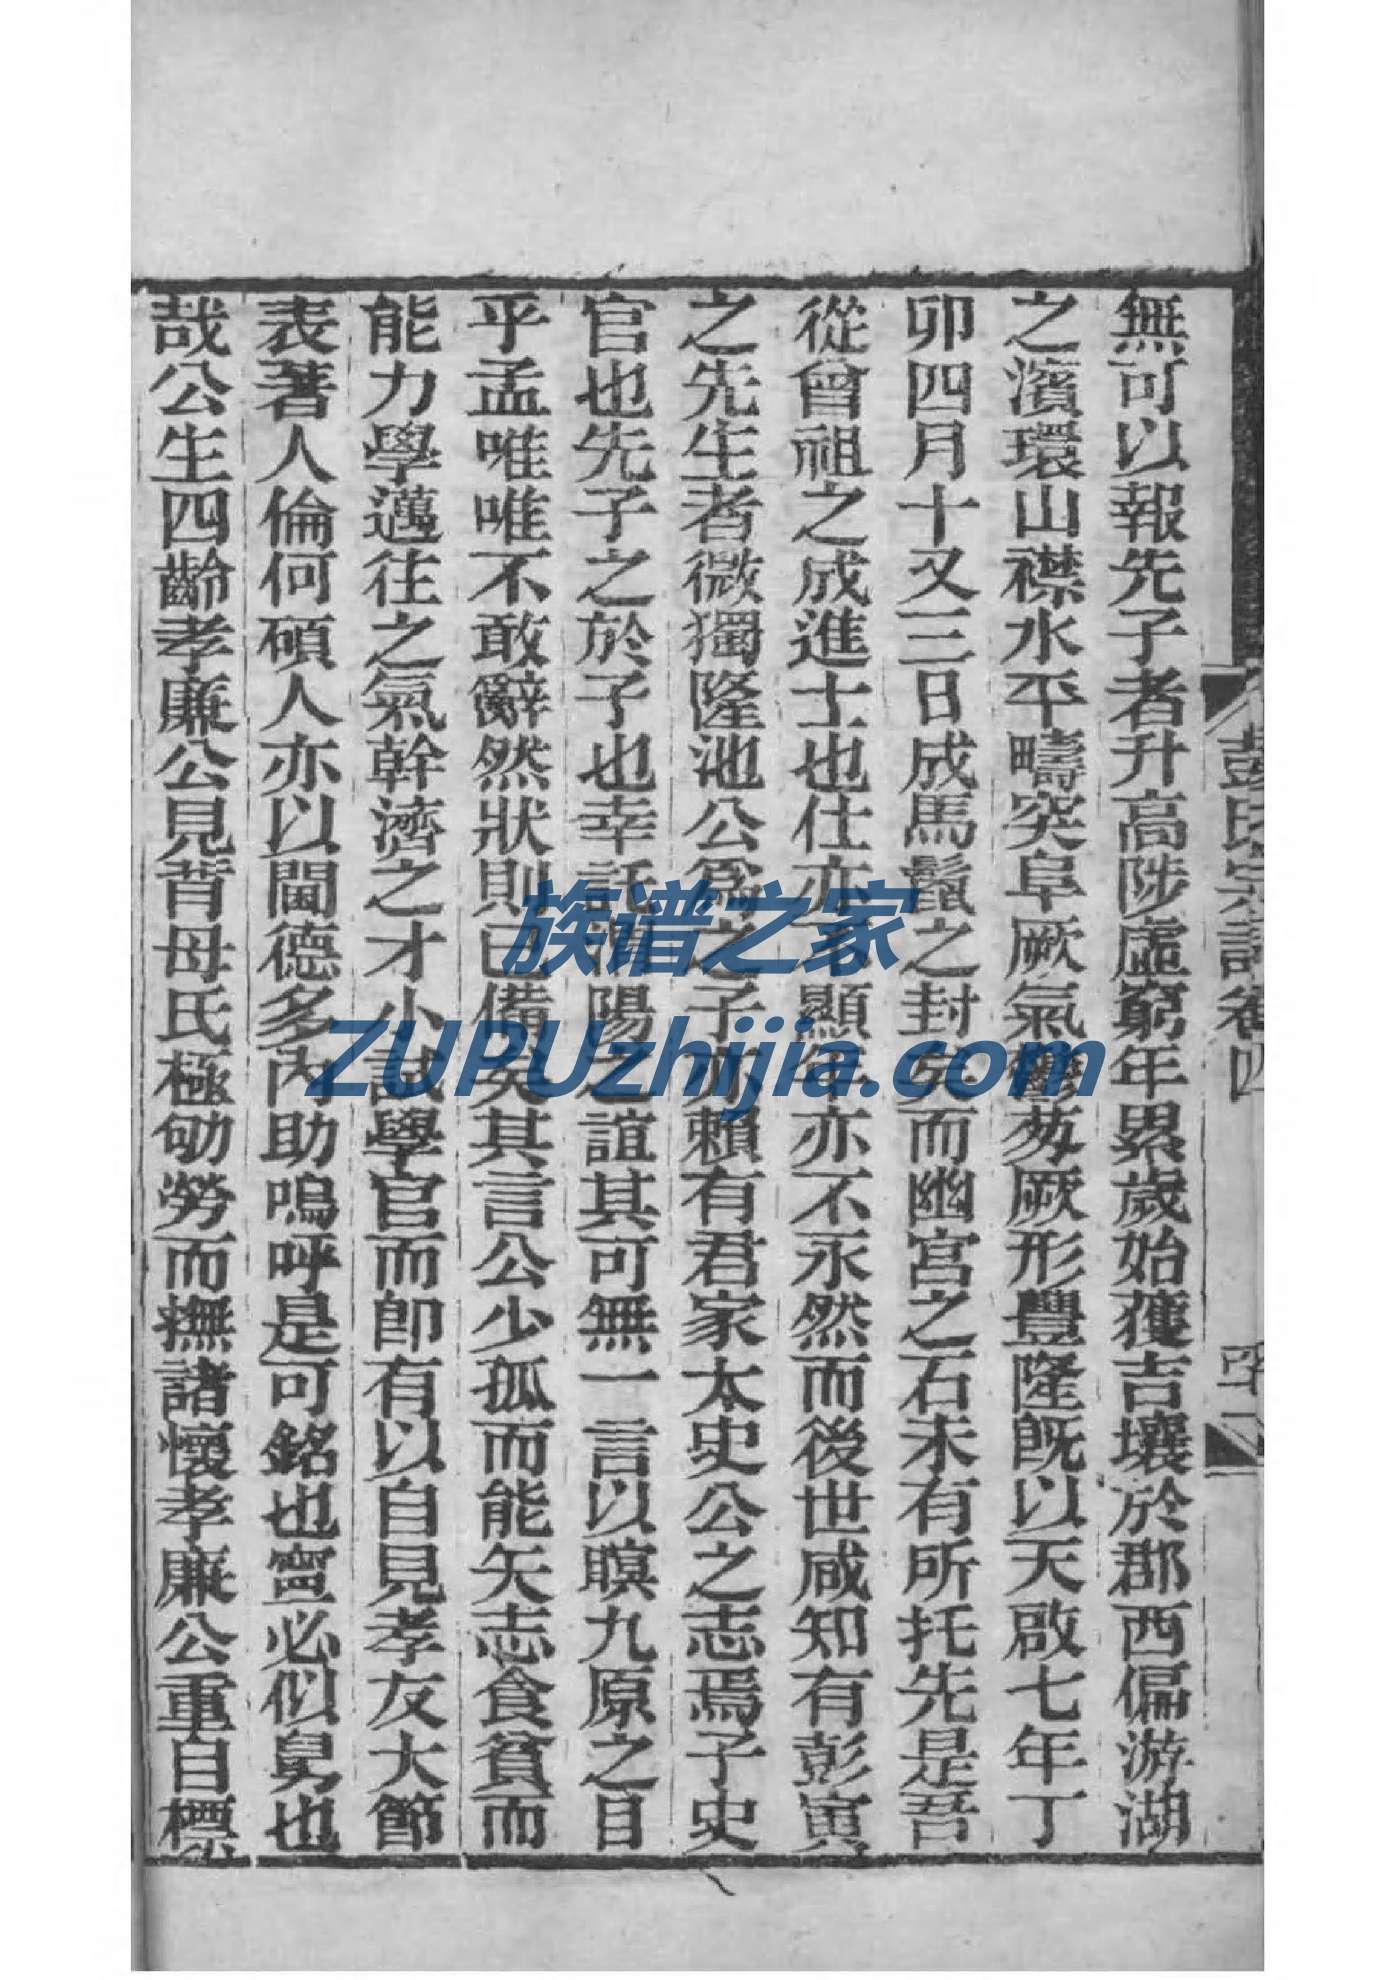 彭氏宗譜卷四
無可以報先子者升高陟虛窮年累歲始獲吉壤於郡西偏游湖
之濱環山襟水平疇突阜厥氣鬱芴厥形豐隆旣以天啟七年丁
卯四月十又三日成馬鬛之封矣而幽宮之石未有所托先是吾
從曾祖之成進士也仕亦不顯年亦不永然而後世咸知有彭寅
之先生者微獨隆池公爲之子亦賴有君家太史公之志焉子史
官也先子之於子也幸託渭陽之誼其可無一言以瞑九原之目
乎孟唯唯不敢辭然狀則已備矣其言公少孤而能矢志食貧而
能力學邁往之氣幹濟之才小試學官而卽有以自見孝友大節
表著人倫何碩人亦以閫德多內助嗚呼是可銘也寧必似舅也
哉公生四齡孝廉公見背母氏極劬勞而撫諸懷孝廉公重自標
族谱之家
ZUPUzhijia.com